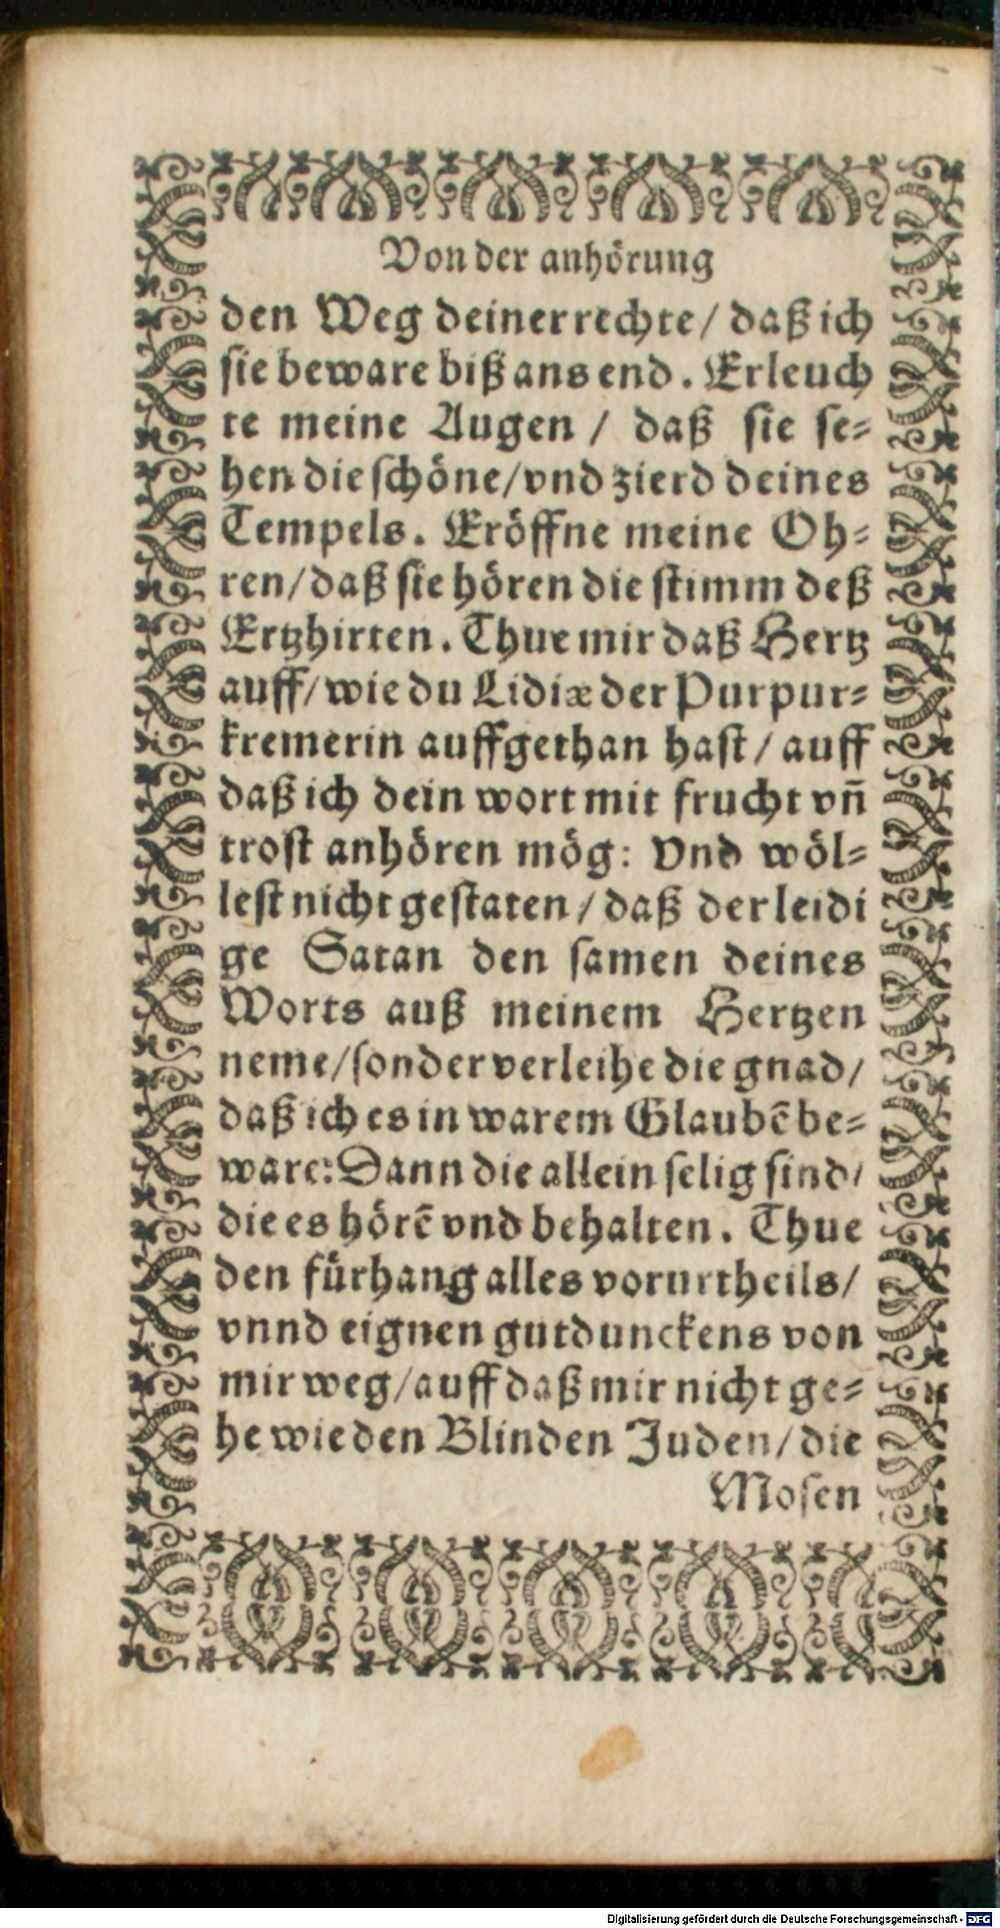 Von der anhörung
den Weg deiner rechte/ daß ich
sie beware biß ans end. Erleuch
te meine Augen / daß sie se-
hen die schöne/vnd zierd deines
Tempels. Eröffne meine Oh-
ren/daß sie hören die stimm deß
Ertzhirten. Thue mir daß Hertz
auff/wie du Lidiæ der Purpur-
kremerin auffgethan hast/ auff
daß ich dein wort mit frucht vñ
trost anhören mög: Vnd wöl-
lest nicht gestaten/daß der leidi
ge Satan den samen deines
Worts auß meinem Hertzen
neme/sonder verleihe die gnad/
daß ich es in warem Glaubẽ be-
ware: Dann die allein selig sind/
die es hörẽ vnd behalten. Thue
den fürhang alles vorurtheils/
vnnd eignen gutdunckens von
mir weg/auff daß mir nicht ge-
he wie den Blinden Juden/die
Mosen
Digitalisierung gefördert durch die Deutsche Forschungsgemeinschaft - DFG